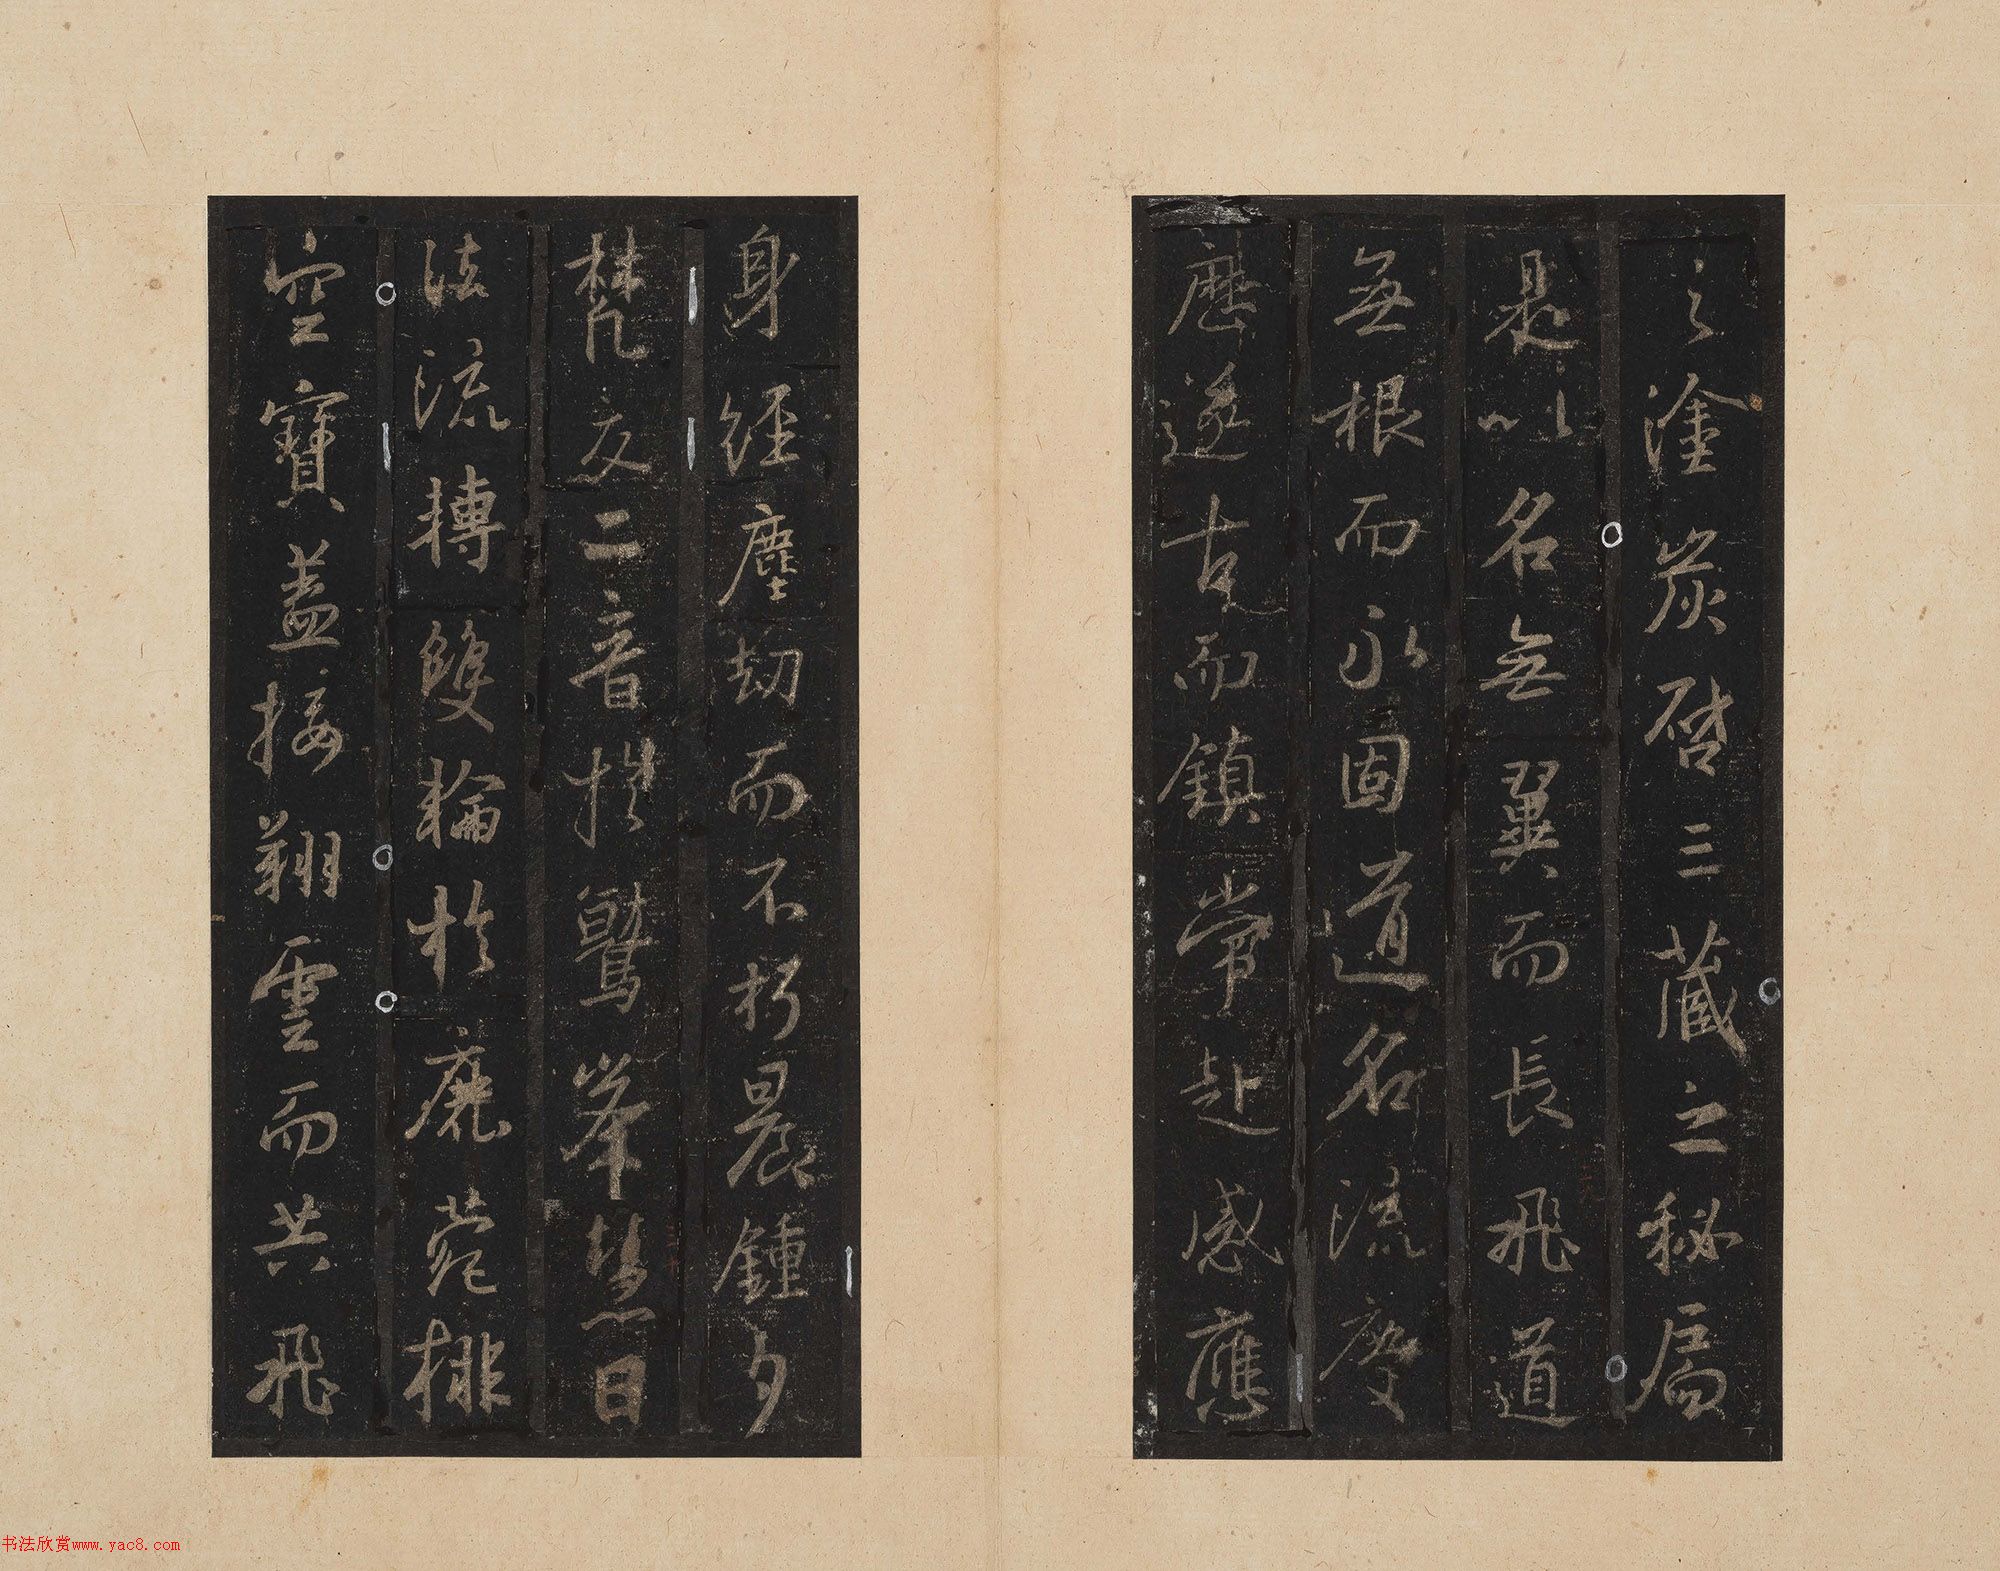 之塗炭啓三藏之秘扃
是以名無翼而長飛道
無根而永固道名流慶
歷遂古而鎮常赴感應
身經塵劫而不朽晨鍾夕
梵交二音於鷲峯慧日
法流轉雙輪於鹿菀排
空寶蓋接翔雲而共飛
书法欣赏www.yac8.com